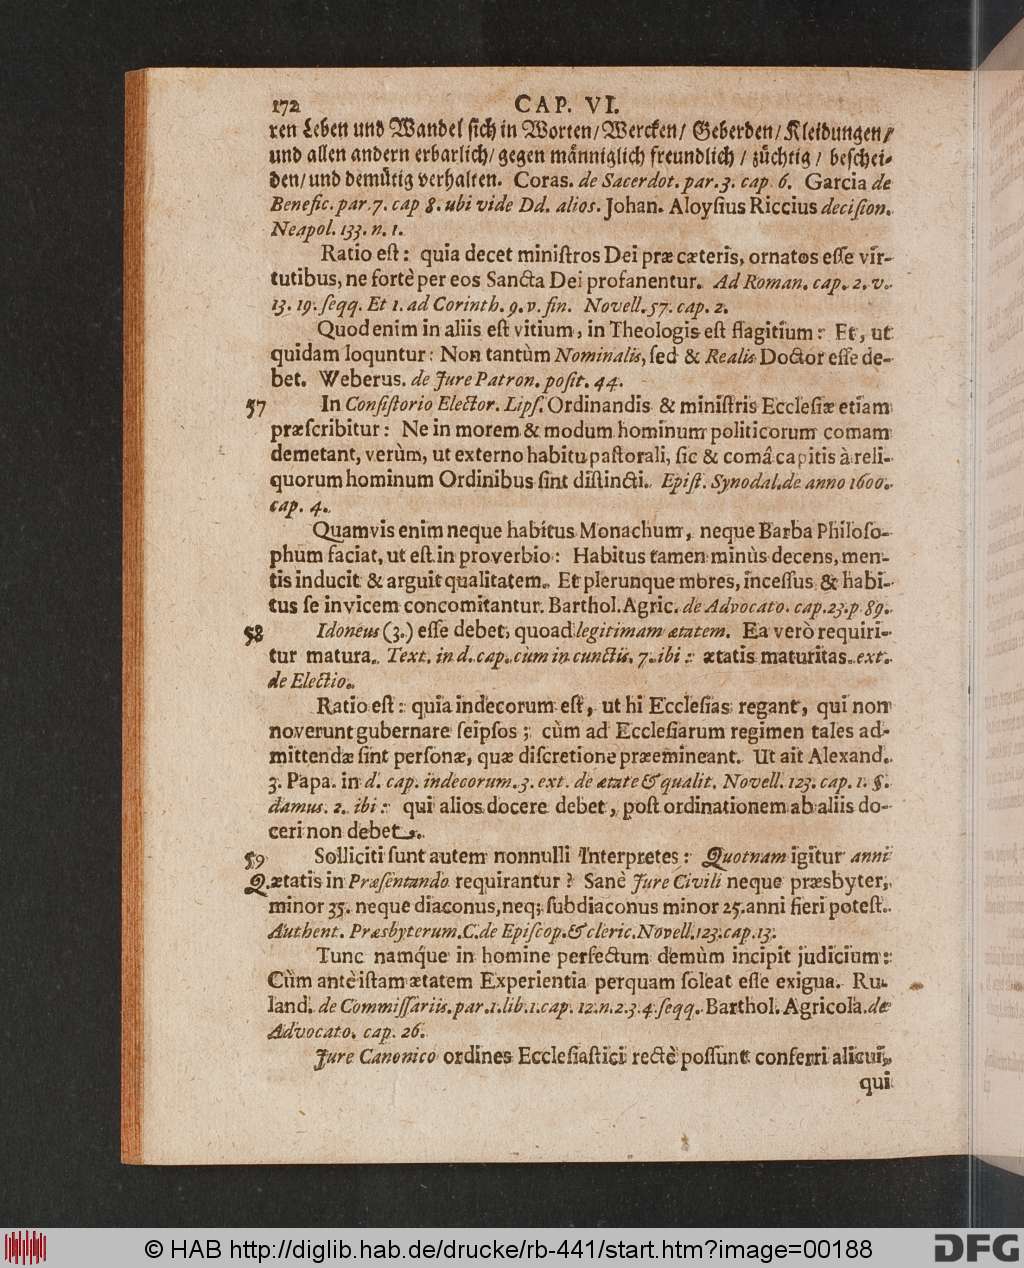 172 CAP. VI.
ren Leben und Wandel ſich in Worten/ Wercken/ Geberden/ Kleidungen/
und allen andern erbarlich/ gegen maͤnniglich freundlich / zuͤchtig / beſchei-
den/ und demuͤtig verhalten. Coras. de Sacerdot. par. 3. cap 6. Garcia de
Benefic. par 7. cap 8. ubi vide Dd. alios. Johan. Aloyſius Riccius deciſion.
Neapol. 133. n. 1.
Ratio eſt: quia decet miniſtros Dei præ cæteris, ornatos eſſe vir-
tutibus, ne fortè per eos Sancta Dei profanentur. Ad Roman. cap. 2. v.
13. 19. ſeqq. Et 1. ad Corinth. 9. v. fin. Novell. 57. cap. 2.
Quod enim in aliis eſt vitium, in Theologis eſt flagitium: Et, ut
quidam loquntur: Non tantùm Nominalis, ſed & Realis Doctor eſſe de-
bet. Weberus. de Jure Patron. poſit. 44.
57 In Conſiſtorio Elector. Lipſ. Ordinandis & miniſtris Eccleſiæ etiam
præſcribitur: Ne in morem & modum hominum politicorum comam
demetant, verùm, ut externo habitu paſtorali, ſic & comâ capitis à reli-
quorum hominum Ordinibus ſint diſtincti. Epiſt. Synodal. de anno 1600.
cap. 4.
Quamvis enim neque habitus Monachum, neque Barba Philoſo-
phum faciat, ut eſt in proverbio: Habitus tamen minùs decens, men-
tis inducit & arguit qualitatem. Et plerunque mores, inceſſus & habi-
tus ſe invicem concomitantur. Barthol. Agric. de Advocato. cap. 23. p 89.
58 Idoneus (3.) eſſe debet, quoad legitimam ætatem. Ea verò requiri-
tur matura. Text. in d. cap. cùm in cunctis. 7. ibi: ætatis maturitas. ext.
de Electio.
Ratio eſt: quia indecorum eſt, ut hi Eccleſias regant, qui non
noverunt gubernare ſeipſos; cùm ad Eccleſiarum regimen tales ad-
mittendæ ſint perſonæ, quæ diſcretione præemineant. Ut ait Alexand.
3. Papa. in d. cap. indecorum. 3. ext. de ætate & qualit. Novell. 123. cap. 1. §.
damus. 2. ibi: qui alios docere debet, poſt ordinationem ab aliis do-
ceri non debet.
59 Solliciti ſunt autem nonnulli Interpretes: Quotnam igitur anni
Q. ætatis in Præſentando requirantur? Sanè Jure Civili neque præsbyter,
minor 35. neque diaconus, neq; ſubdiaconus minor 25. anni fieri poteſt.
Authent. Præsbyterum. C. de Epiſcop. & cleric. Novell. 123. cap. 13.
Tunc namq́ue in homine perfectum demùm incipit judicium:
Cùm antè iſtam ætatem Experientia perquam ſoleat eſſe exigua. Ru-
land. de Commiſſariis. par. 1. lib. 1. cap. 12. n. 2. 3. 4. ſeqq. Barthol. Agricola. de
Advocato. cap. 26.
Jure Canonico ordines Eccleſiaſtici rectè poſſunt conferri alicui,
qui
© HAB http://diglib.hab.de/drucke/rb-441/start.htm?image=00188
DFG